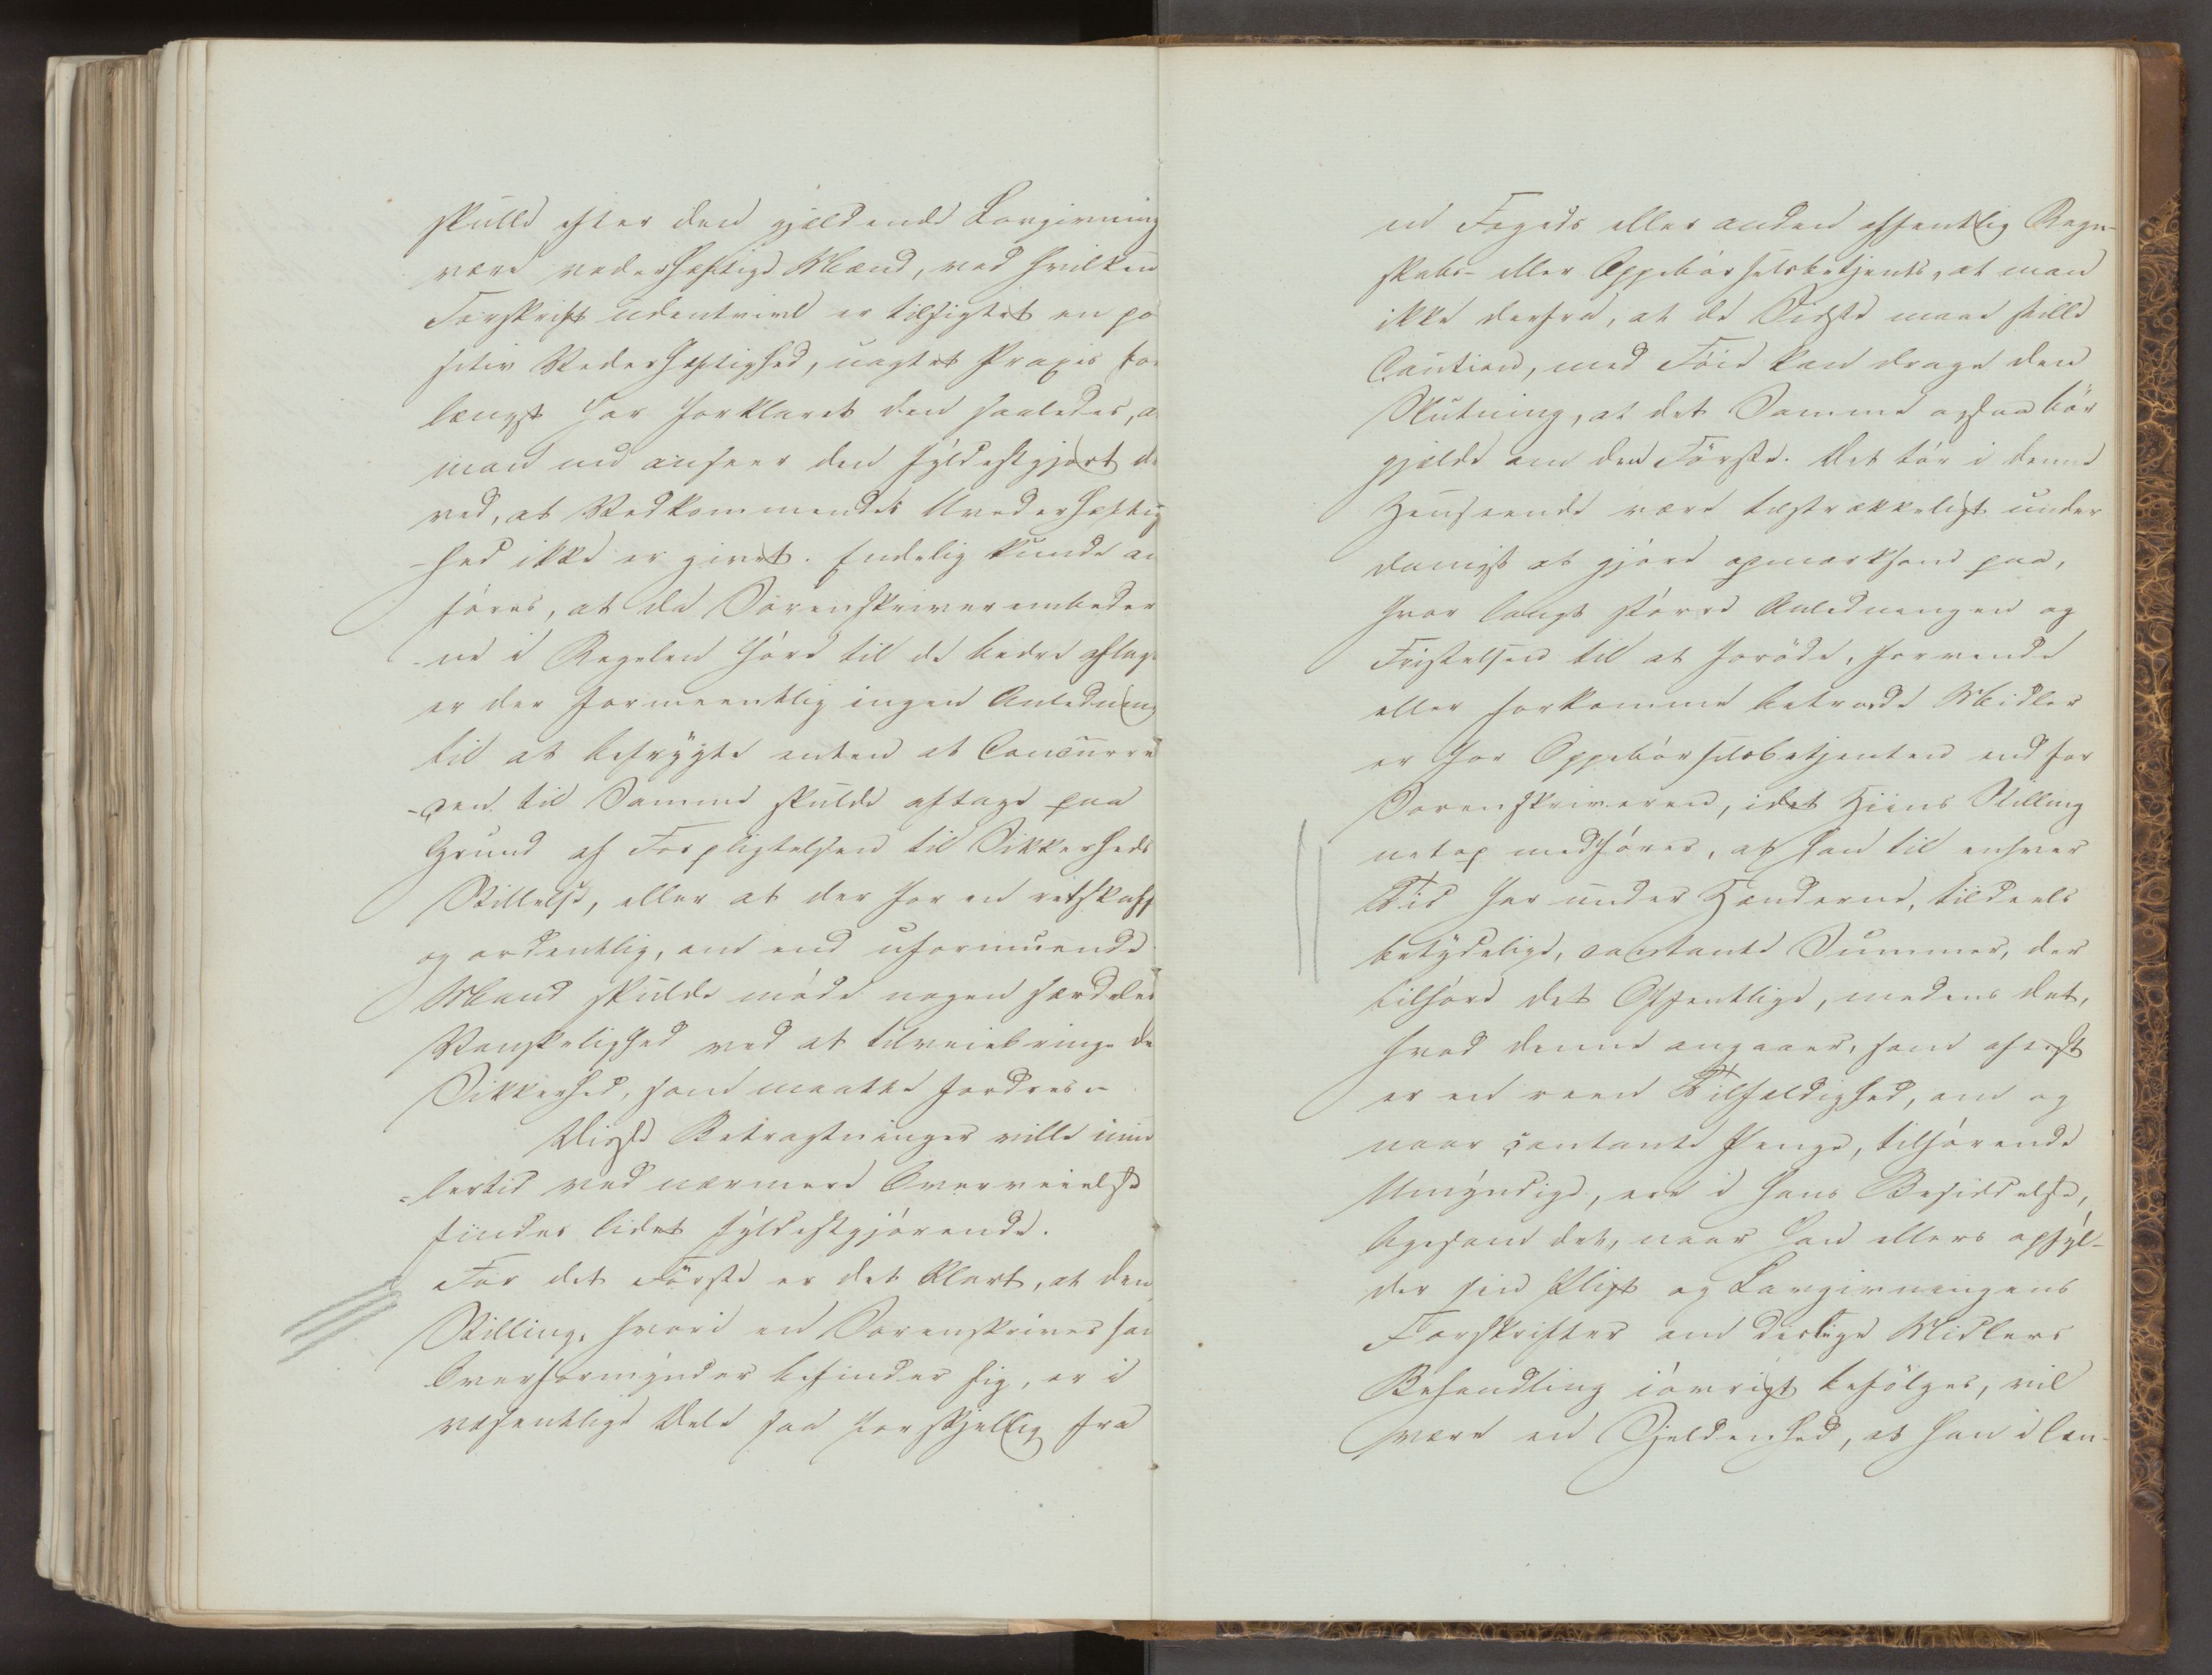 skulle efter den gjældende Lovgivning
være vederhæftige Mænd, ved hvilken
Forskrift udentvivl er tilsigtet en po
sitiv Vederhæftighed, uagtet Praxis for
længst har forklaret den saaledes, a
man nu anseer den fyldestgjort de
ved, at Vedkommendes Uvederhæftig
-hed ikke er givet. Endelig kunde an
føres, at da Sorenskriverembeder
-ne i Regelen høre til de bedre aflag
er der formeentlig ingen Anledning
til at befrygte enten at Concurre
-cen til Samme skulde aftage paa
Grund af Forpligtelsen til Sikkerheds
Stillelse, eller at der for en retskaff
og ordentlig, om end uformuende
Mand skulde møde nogen særdeles
Vanskelighed ved at tilveiebringe de
Sikkerhed, som maatte fordres.-
Disse Betragtninger ville imid
-lertid ved nærmere Overveielse
findes lidet fyldestgjørende.
For det Første er det klart, at den
Stilling, hvori en Sorenskriver som
Overformynder befinder sig, er i
væsentlige Dele saa forskjellig fra
en Fogeds eller anden offentlig Regn-
skabs- eller Oppebørselsbetjents, at man
ikke derfra, at de Sidste maae stille
Caution, med Føie kan drage den
Slutning, at det Samme ogsaa bør
gjælde om den Første. Det tør i denne
Henseende være tilstrækkeligt under
danigst at gjøre opmærksom paa,
hvor langt større Anledningen og
Fristelsen til at forøde, forvende
eller forkomme betroede Midler
er for Oppebørselsbetjenten end for
Sorenskriveren, idet Hiins Stilling
netop medfører, at han til enhver
Tid har under Hænderne, tildeels
betydelige, contante Summer, der
tilhøre det Offentlige, medens det,
hvad denne angaaer, som oftest
er en reen Tilfældighed, om og
naar contante Penge, tilhørende
Umyndige, ere i hans Besiddelse,
ligesom det, naar han ellers opfyl-
der sin Pligt og Lovgivningens
Forskrifter om deslige Midlers
Behandling iøvrigt befølges, vil
være en Sjeldenhed, at han i læn-